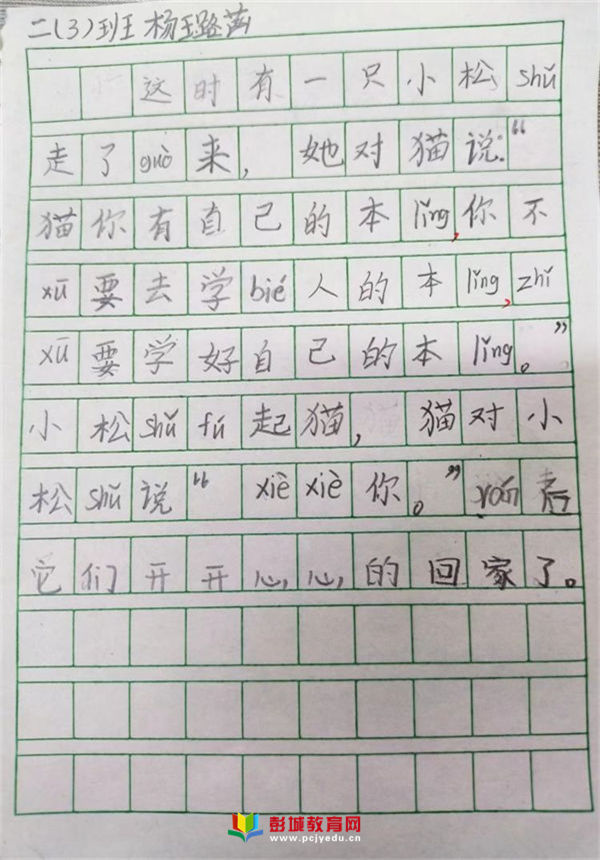 二(3)班 杨璐菡
这时有一只小松shǔ
走了guò来，她对猫说:“
猫你有自己的本lǐng,你不
xū要去学bié人的本lǐng,zhǐ
xū要学好自己的本lǐng。”
小松shǔ fú起猫，猫对小
松shǔ说“xiè xiè你。”rán后
它们开开心心的回家了。
彭城教育网
www.pcjyedu.cn